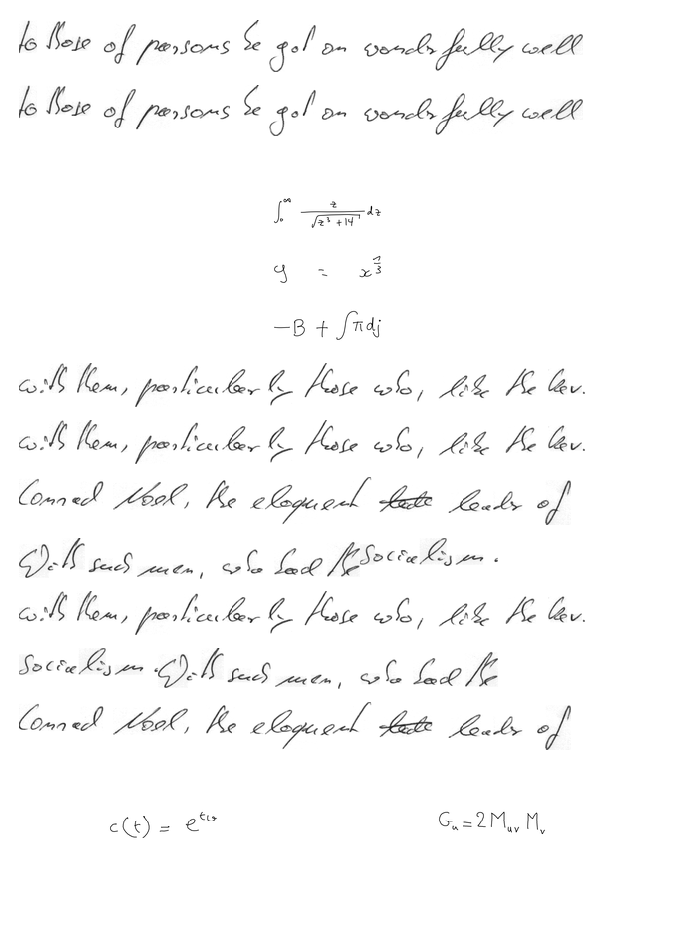 to those of persons he got on wonderfully well
to those of persons he got on wonderfully well
∫₀^∞ z/√(z³+14) dz
y = x^(1/3)
−B + ∫π dj
with them, particularly those who, like the Rev.
with them, particularly those who, like the Rev.
Conrad Noel, the eloquent leader of
With such men, who had the Socialism.
with them, particularly those who, like the Rev.
Socialism. With such men, who had the
Conrad Noel, the eloquent leader of
c(t) = e^
G_u = 2M_uv M_v